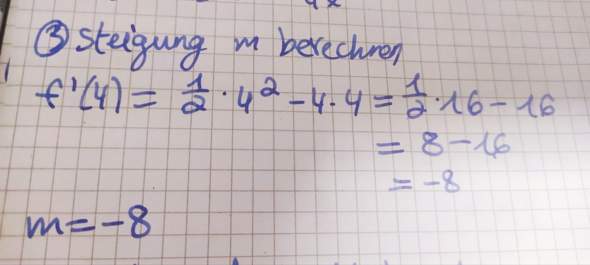 ③ Steigung m berechnen
f'(4) = 1/2 · 4² - 4 · 4 = 1/2 · 16 - 16
= 8 - 16
= -8
m = -8